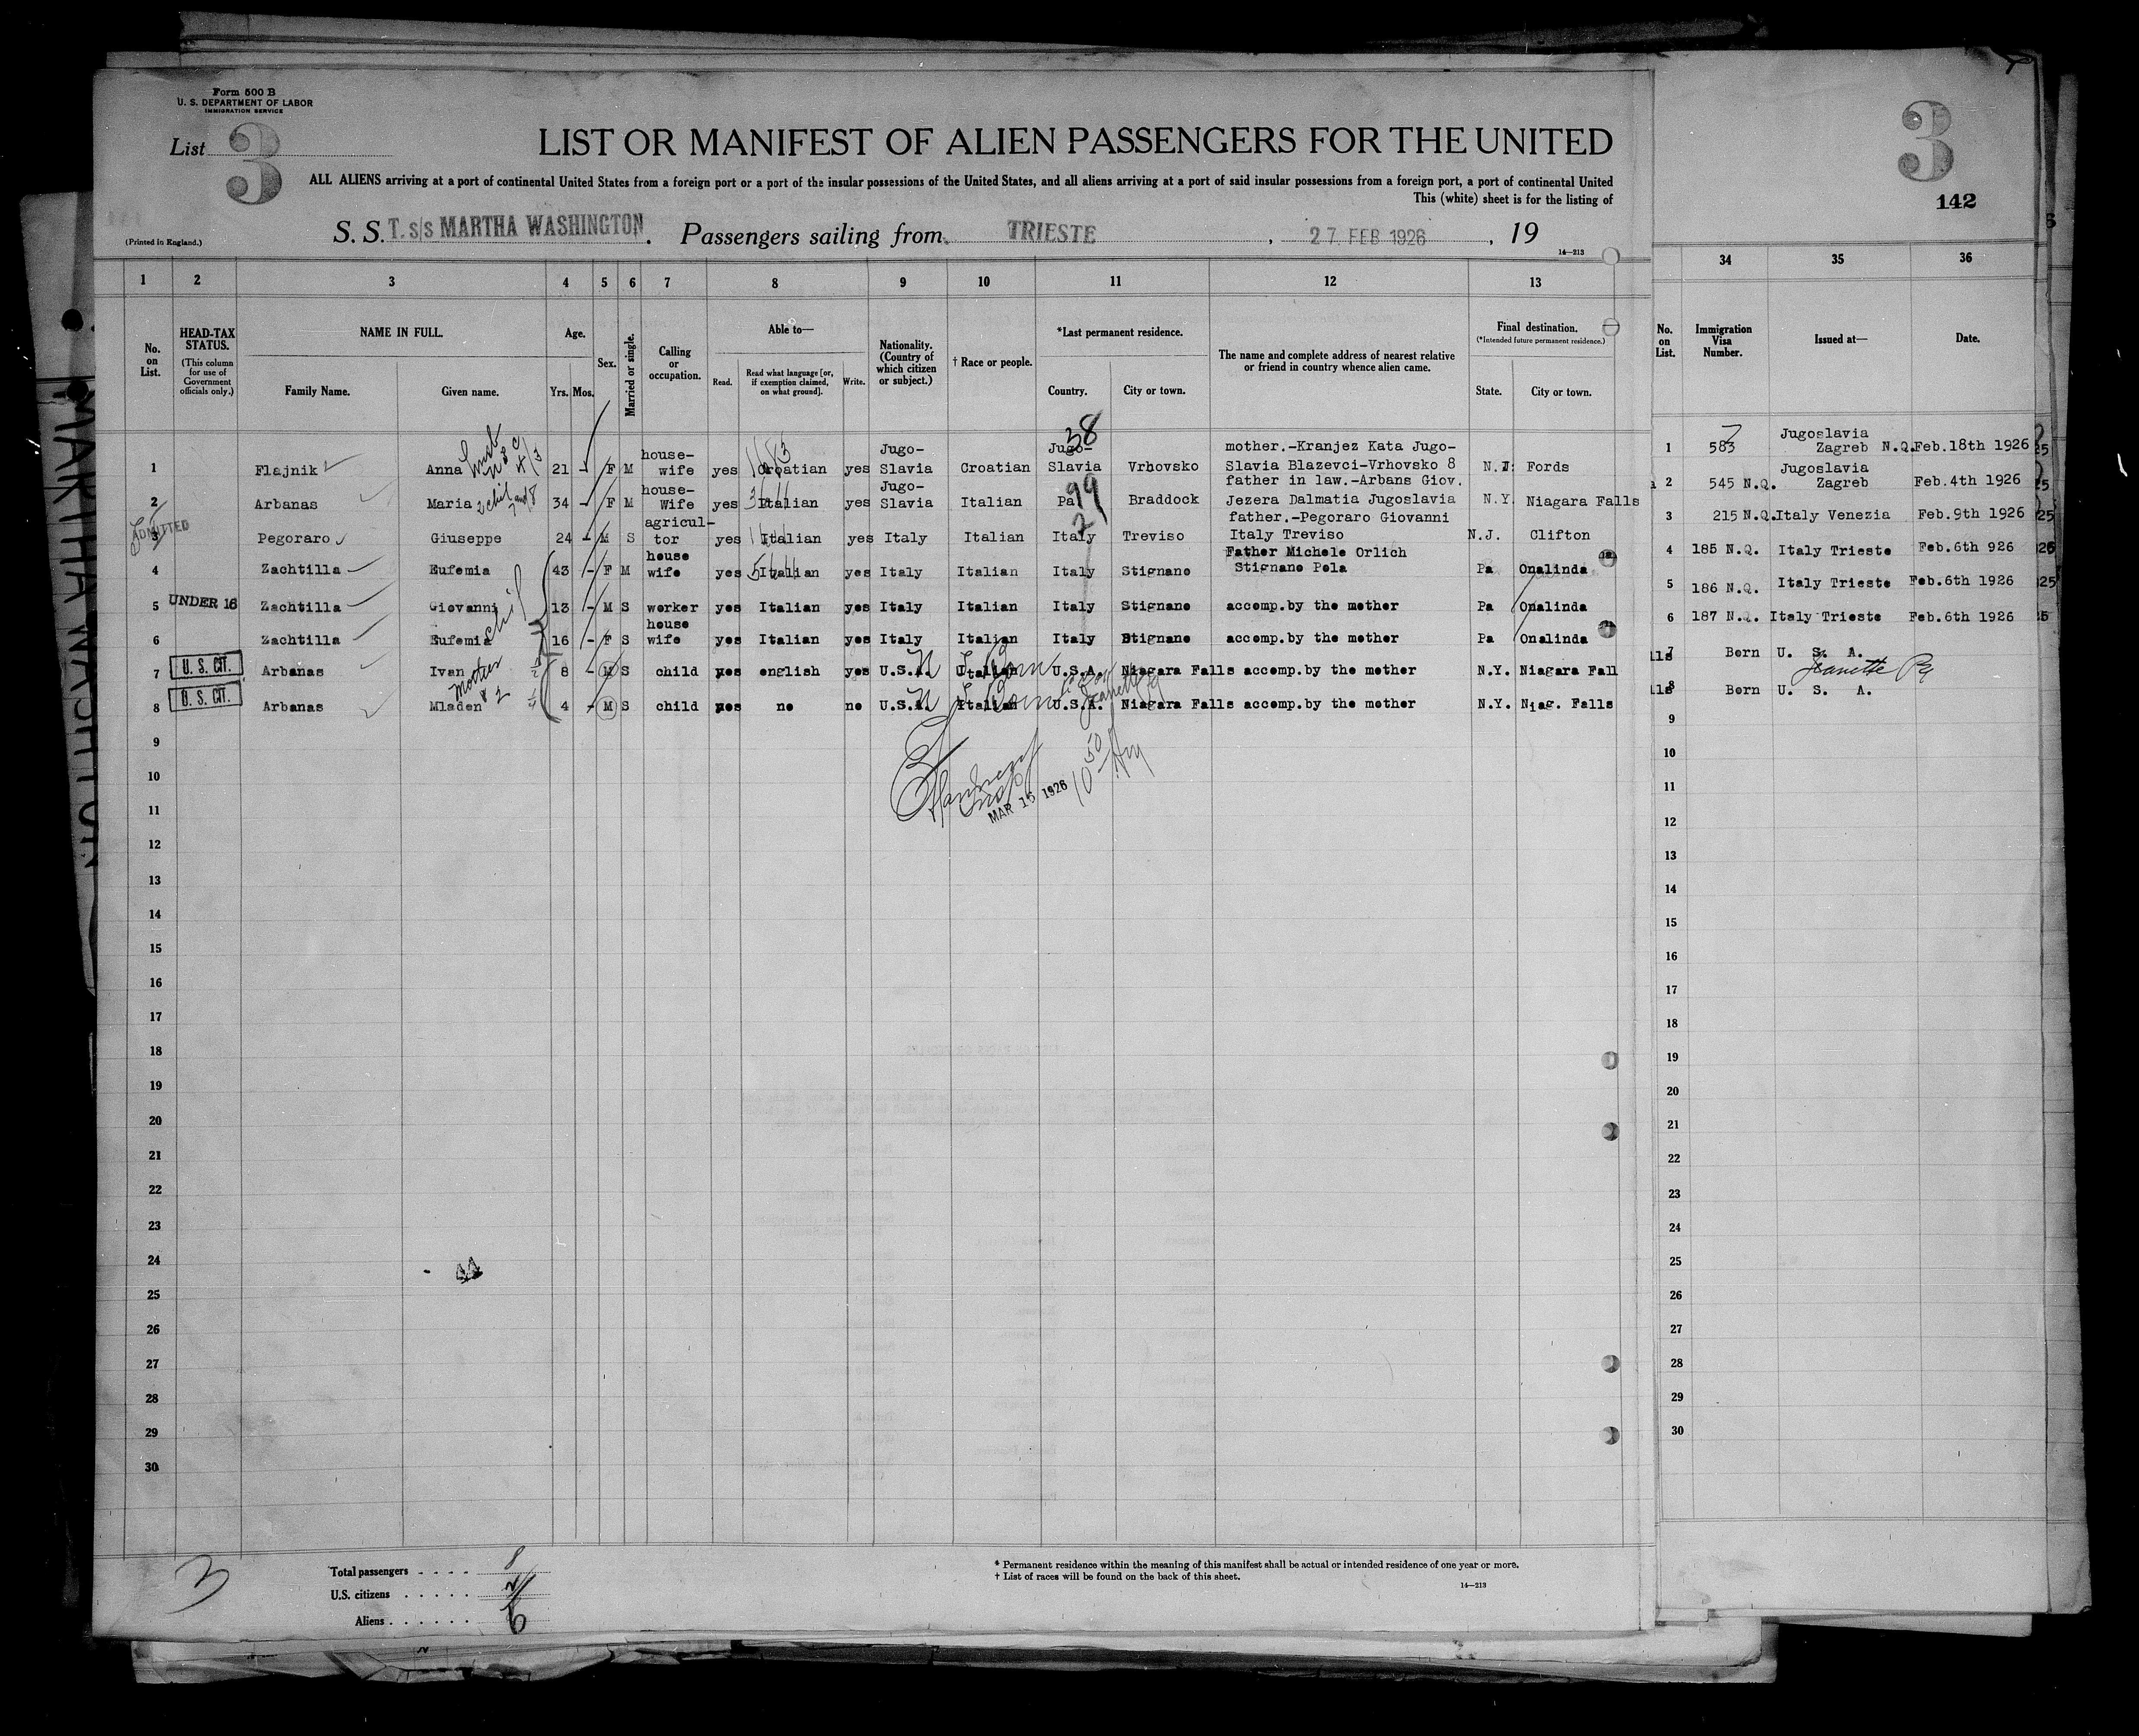 Form 500 B
U. S. DEPARTMENT OF LABOR
IMMIGRATION SERVICE
List 3
LIST OR MANIFEST OF ALIEN PASSENGERS FOR THE UNITED
ALL ALIENS arriving at a port of continental United States from a foreign port or a port of the insular possessions of the United States, and all aliens arriving at a port of said insular possessions from a foreign port, a port of continental United
This (white) sheet is for the listing of
(Printed in England.)
S. S. T. s/s MARTHA WASHINGTON. Passengers sailing from TRIESTE, 27 FEB 1926, 19
14—213
3
142
1 2 3 4 5 6 7 8 9 10 11 12 13
34 35 36
No. on List.
HEAD-TAX STATUS.
(This column for use of Government officials only.)
NAME IN FULL.
Family Name. Given name.
Age.
Yrs. Mos.
Sex.
Married or single.
Calling or occupation.
Able to—
Read. Read what language [or, if exemption claimed, on what ground]. Write.
Nationality. (Country of which citizen or subject.)
† Race or people.
*Last permanent residence.
Country. City or town.
The name and complete address of nearest relative or friend in country whence alien came.
Final destination.
(*Intended future permanent residence.)
State. City or town.
No. on List.
Immigration Visa Number.
Issued at—
Date.
1 Flajnik Anna 21 - F M house-wife yes Croatian yes Jugo-Slavia Croatian Jugo-Slavia Vrhovsko mother.-Kranjez Kata Jugo-Slavia Blazevci-Vrhovsko 8 N.J. Fords
2 Arbanas Maria 34 - F M house-Wife yes Italian yes Jugo-Slavia Italian Pa Braddock father in law.-Arbans Giov. Jezera Dalmatia Jugoslavia N.Y. Niagara Falls
ADMITTED
3 Pegoraro Giuseppe 24 - M S agricul-tor yes Italian yes Italy Italian Italy Treviso father.-Pegoraro Giovanni Italy Treviso N.J. Clifton
4 Zachtilla Eufemia 43 - F M house wife yes Italian yes Italy Italian Italy Stignano Father Michele Orlich Stignano Pola Pa Onalinda
5 UNDER 16 Zachtilla Giovanni 13 - M S worker yes Italian yes Italy Italian Italy Stignano accomp.by the mother Pa Onalinda
6 Zachtilla Eufemia 16 - F S house wife yes Italian yes Italy Italian Italy Stignano accomp.by the mother Pa Onalinda
7 U. S. CIT. Arbanas Ivan 8 - M S child yes english yes U.S.A. Italian U.S.A. Niagara Falls accomp.by the mother N.Y. Niagara Fall
8 U. S. CIT. Arbanas Mladen 4 - M S child no no U.S.A. Italian U.S.A. Niagara Falls accomp.by the mother N.Y. Niag. Falls
1 583 Jugoslavia Zagreb N.Q. Feb.18th 1926
2 545 N.Q. Jugoslavia Zagreb Feb.4th 1926
3 215 N.Q. Italy Venezia Feb.9th 1926
4 185 N.Q. Italy Trieste Feb.6th 926
5 186 N.Q. Italy Trieste Feb.6th 1926
6 187 N.Q. Italy Trieste Feb.6th 1926
7 Born U. S. A.
Jeanette Pa
8 Born U. S. A.
38
99
2
MAR 15 1926
9
10
11
12
13
14
15
16
17
18
19
20
21
22
23
24
25
26
27
28
29
30
9
10
11
12
13
14
15
16
17
18
19
20
21
22
23
24
25
26
27
28
29
30
3
Total passengers . . . . 8
U.S. citizens . . . . . 2
Aliens . . . . . . 6
* Permanent residence within the meaning of this manifest shall be actual or intended residence of one year or more.
† List of races will be found on the back of this sheet.
14—213